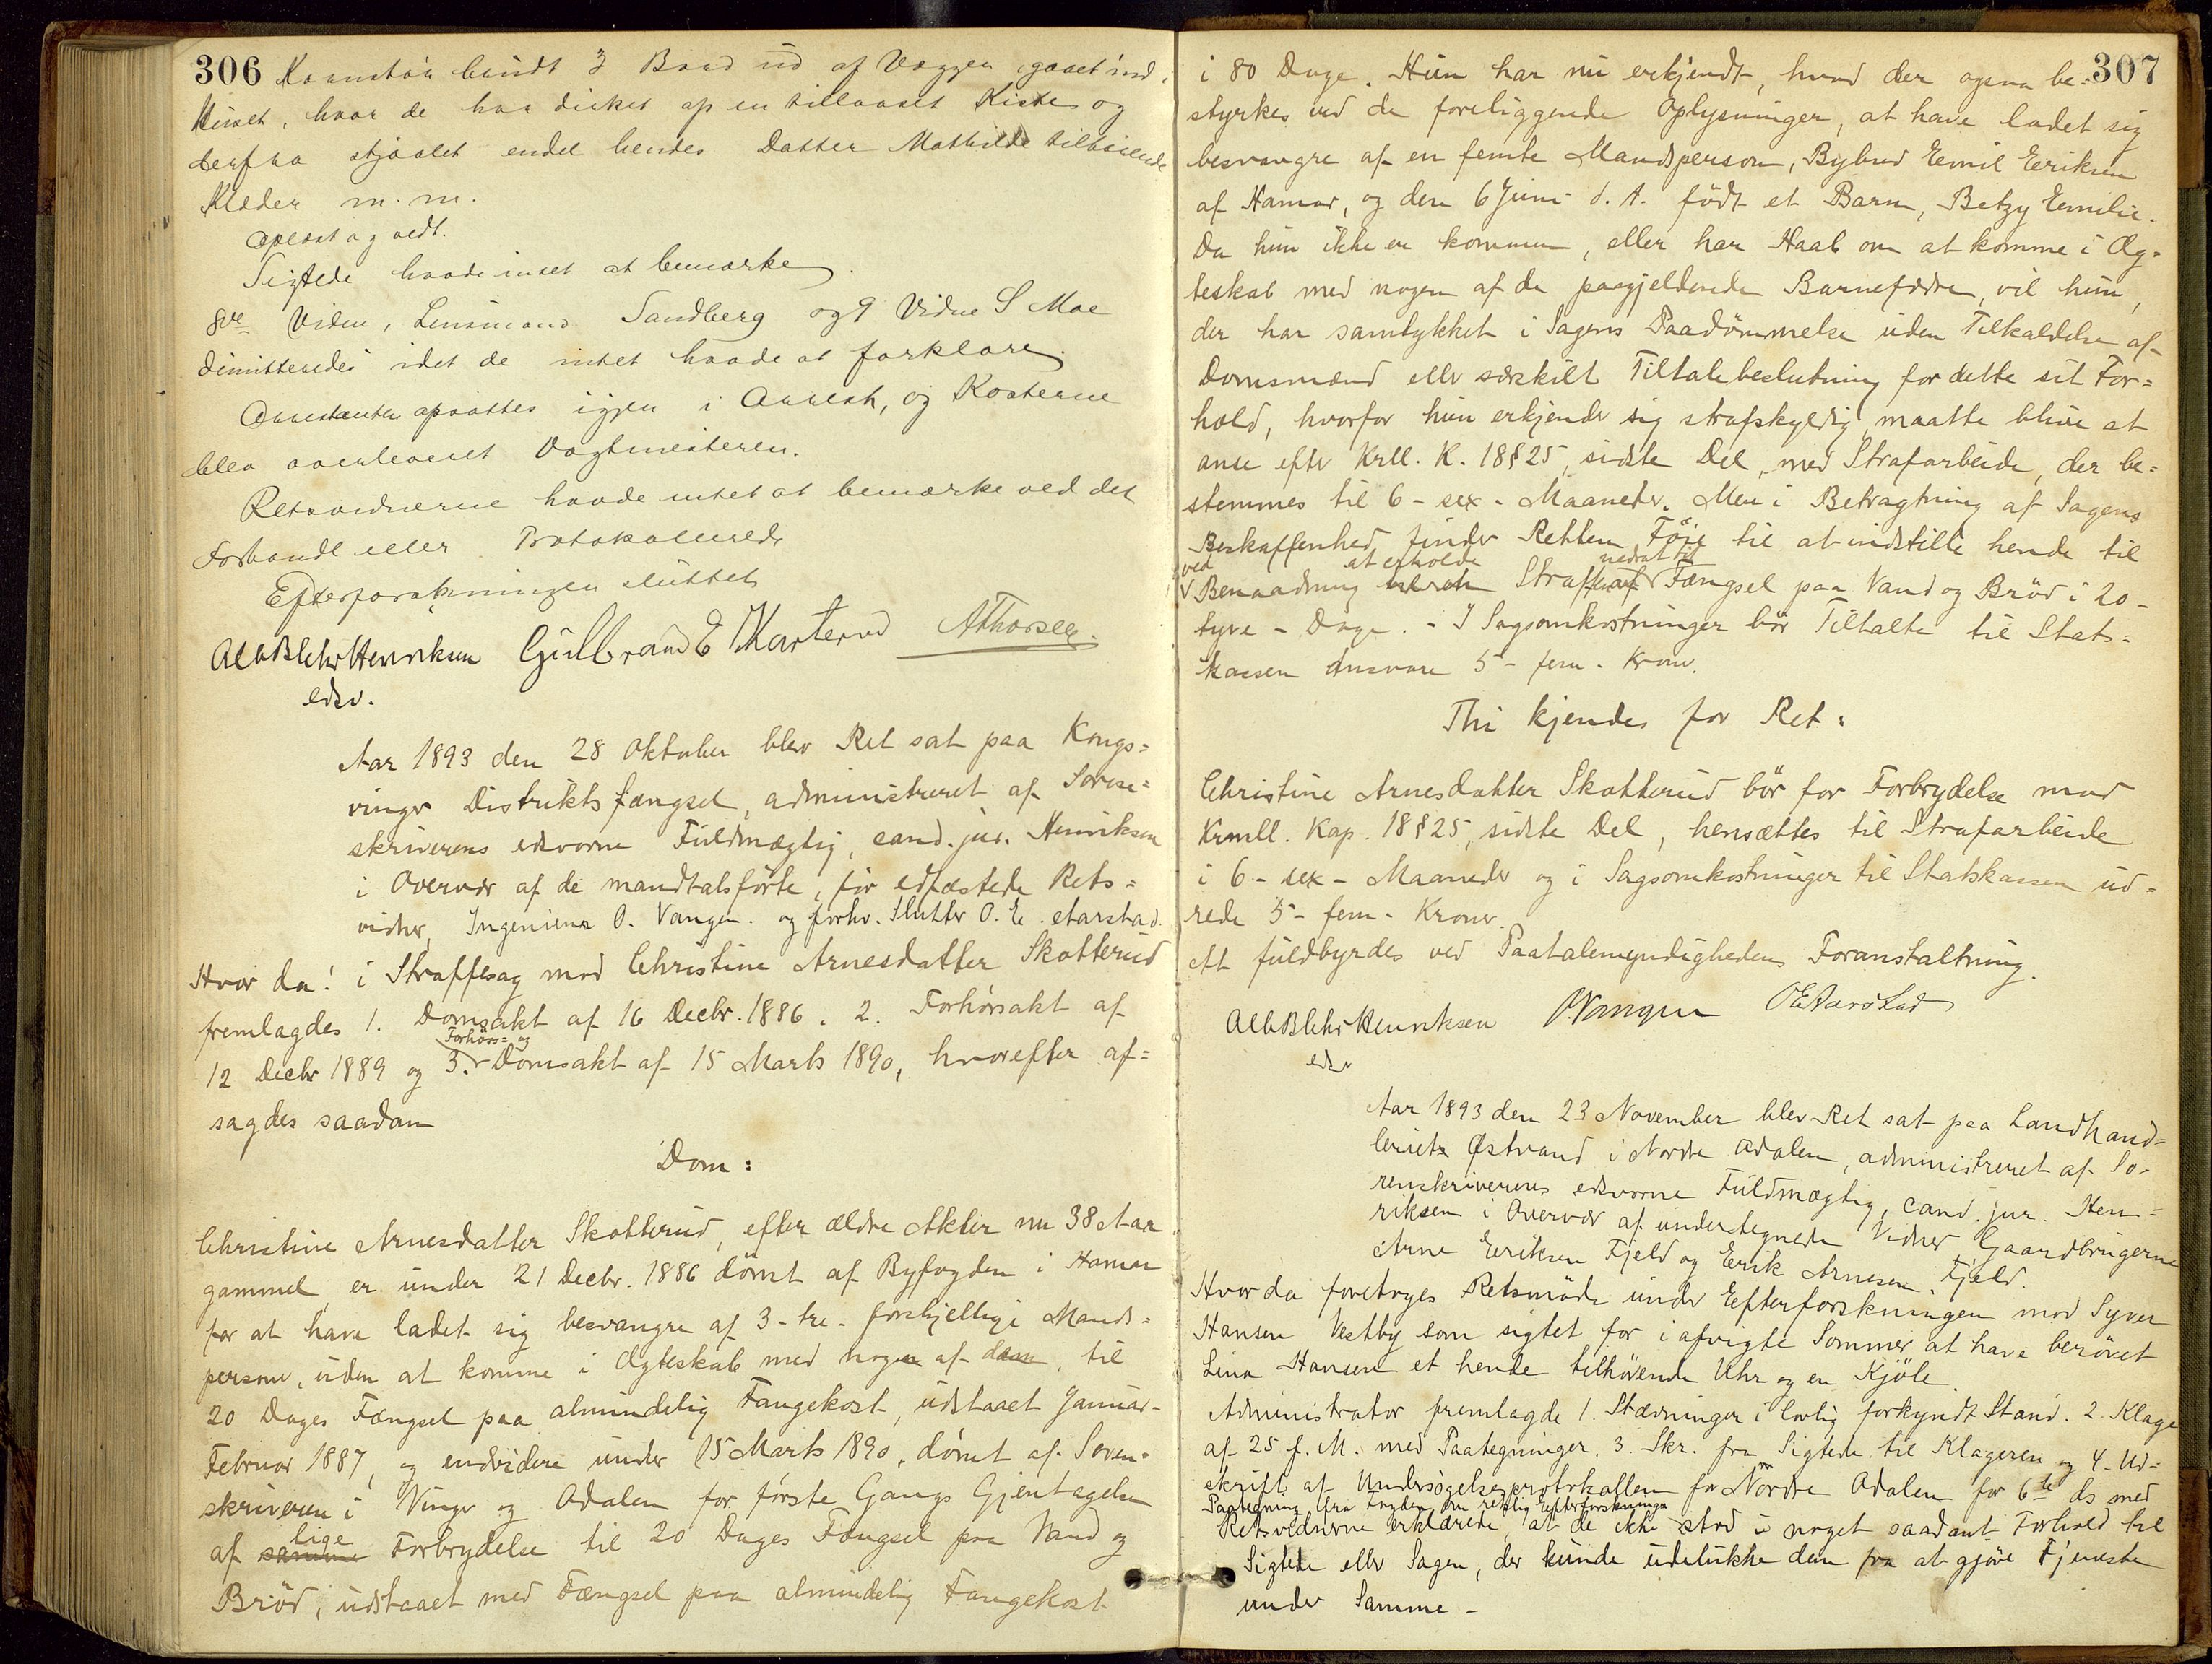 306
bundt 3 Bord ud af Væggen, gaaet ind i
Huset, hvor de har dirket op en tillaaset Kiste og
derfra stjaalet endel hendes Datter Mathilde tilhørende
Klæder m. m.
Oplæst og vedt.
Sigtede havde intet at bemærke.
8de Vidne, Lensmand Sandberg og 9 Vidne S Moe
dimitteredes idet de intet havde at forklare.
Arrestanten afsattes igjen i Arrest, og Kosterne
blev overleveret Vagtmesteren.
Retsvidnerne havde intet at bemærke ved det
Forhandl eller Protokollerede
Efterforskningen sluttet
Alb Blehr Henriksen Gulbrand E Karterud AThorsen
edsv.
Aar 1893 den 28 Oktober blev Ret sat paa Kongs=
vinger Distriktsfængsel, administreret af Soren=
skriverens edsvorne Fuldmægtig, cand. jur. Henriksen
i Overvær af de mandtalsførte, før edfæstede Rets=
vidner, Ingeniør O. Vangen og forhv. Slutter O. E. Aarstad.
Hvor da: i Straffesag mod Christine Arnesdatter Skotterud
fremlagdes 1. Domsakt af 16 Decbr. 1886. 2. Forhørsakt af
12 Decbr 1889 og 3. Forhørs= og Domsakt af 15 Marts 1890, hvorefter af=
sagdes saadan
Dom:
Christine Arnesdatter Skotterud, efter ældre Akter nu 38 Aar
gammel, er under 21 Decbr. 1886 dømt af Byfogden i Hamar
for at have ladet sig besvangre af 3 - tre - forskjellige Mands=
personer, uden at komme i Ægteskab med nogen af disse, til
20 Dages Fængsel paa almindelig Fangekost, udstaaet Januar-
Februar 1887, og endvidere under 15 Marts 1890, dømt af Soren=
skriveren i Vinger og Odalen for første Gangs Gjentagelse
af samme lige Forbrydelse til 20 Dages Fængsel paa Vand og
Brød, udstaaet med Fængsel paa almindelig Fangekost
307
i 80 Dage. Hun har nu erkjendt, hvad der ogsaa be=
styrkes ved de foreliggende Oplysninger, at have ladet sig
besvangre af en femte Mandsperson, Bybud Emil Eriksen
af Hamar, og den 6 Juni d. A. født et Barn, Betzy Emilie.
Da hun ikke er kommen, eller har Haab om at komme i Æg=
teskab med nogen af de paagjeldende Barnefædre, vil hun,
der har samtykket i Sagens Paadømmelse uden Tilkaldelse af
Domsmænd eller særskilt Tiltalebeslutning for dette sit For=
hold, hvorfor hun erkjender sig strafskyldig maatte blive at
anse efter Krll. K. 18 § 25, sidste Del, med Strafarbeide, der be=
stemmes til 6 - sex - Maaneder. Men i Betragtning af Sagens
Beskaffenhed finder Retten Føje til at indstille hende til
ved Benaadning at erholde Straffen nedsat til Fængsel paa Vand og Brød i 20 -
tyve - Dage. - I Sagsomkostninger bør Tiltalte til Stats=
kassen ansvare 5 - fem - Kroner.
Thi kjendes for Ret:
Christine Arnesdatter Skotterud bør for Forbrydelse mod
Krmll. Kap. 18 § 25, sidste Del, hensættes til Strafarbeide
i 6 - sex - Maaneder og i Sagsomkostninger til Statskassen ud=
rede 5 - fem - Kroner.
At fuldbyrdes ved Paatalemyndighedens Foranstaltning.
Alb Blehr Henriksen O Vangen O E Aarstad
edsv
Aar 1893 den 23 November blev Ret sat paa Landhand=
leriet Østvand i Nordre Odalen, administreret af So-
renskriverens edsvorne Fuldmægtig, cand. jur. Hen=
riksen i Overvær af undertegnede Vidner Gaardbrugerne
Arne Eriksen Fjeld og Erik Arnesen Fjeld.
Hvor da foretoges Retsmøde under Efterforskningen mod Syver
Hansen Vestby som sigtet for i afvigte Sommer at have berøvet
Lina Hansen et hende tilhørende Uhr og en Kjole.
Administrator fremlagde 1. Stævninger i lovlig forkyndt Stand. 2. Klage
af 25 f. M. med Paategninger. 3. Skr. fra Sigtede til Klageren og 4. Ud=
skrift af Undersøgelsesprotokollen for Nordre Odalen for 6te ds med
Paategning fra Fogden om retslig Efterforskning
Retsvidnerne erklærede at de ikke stod i noget saadant Forhold til
Sigtede eller Sagen, der kunde udelukke dem fra at gjøre Tjeneste
under samme -